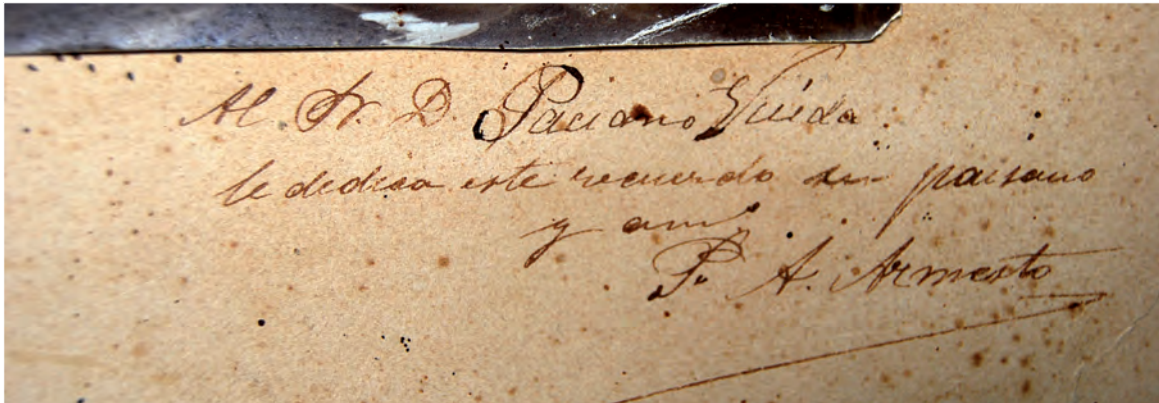 Al Sr. D. Paciano
le dedica este recuerdo su paisano
y am.º
P. A. Armesto